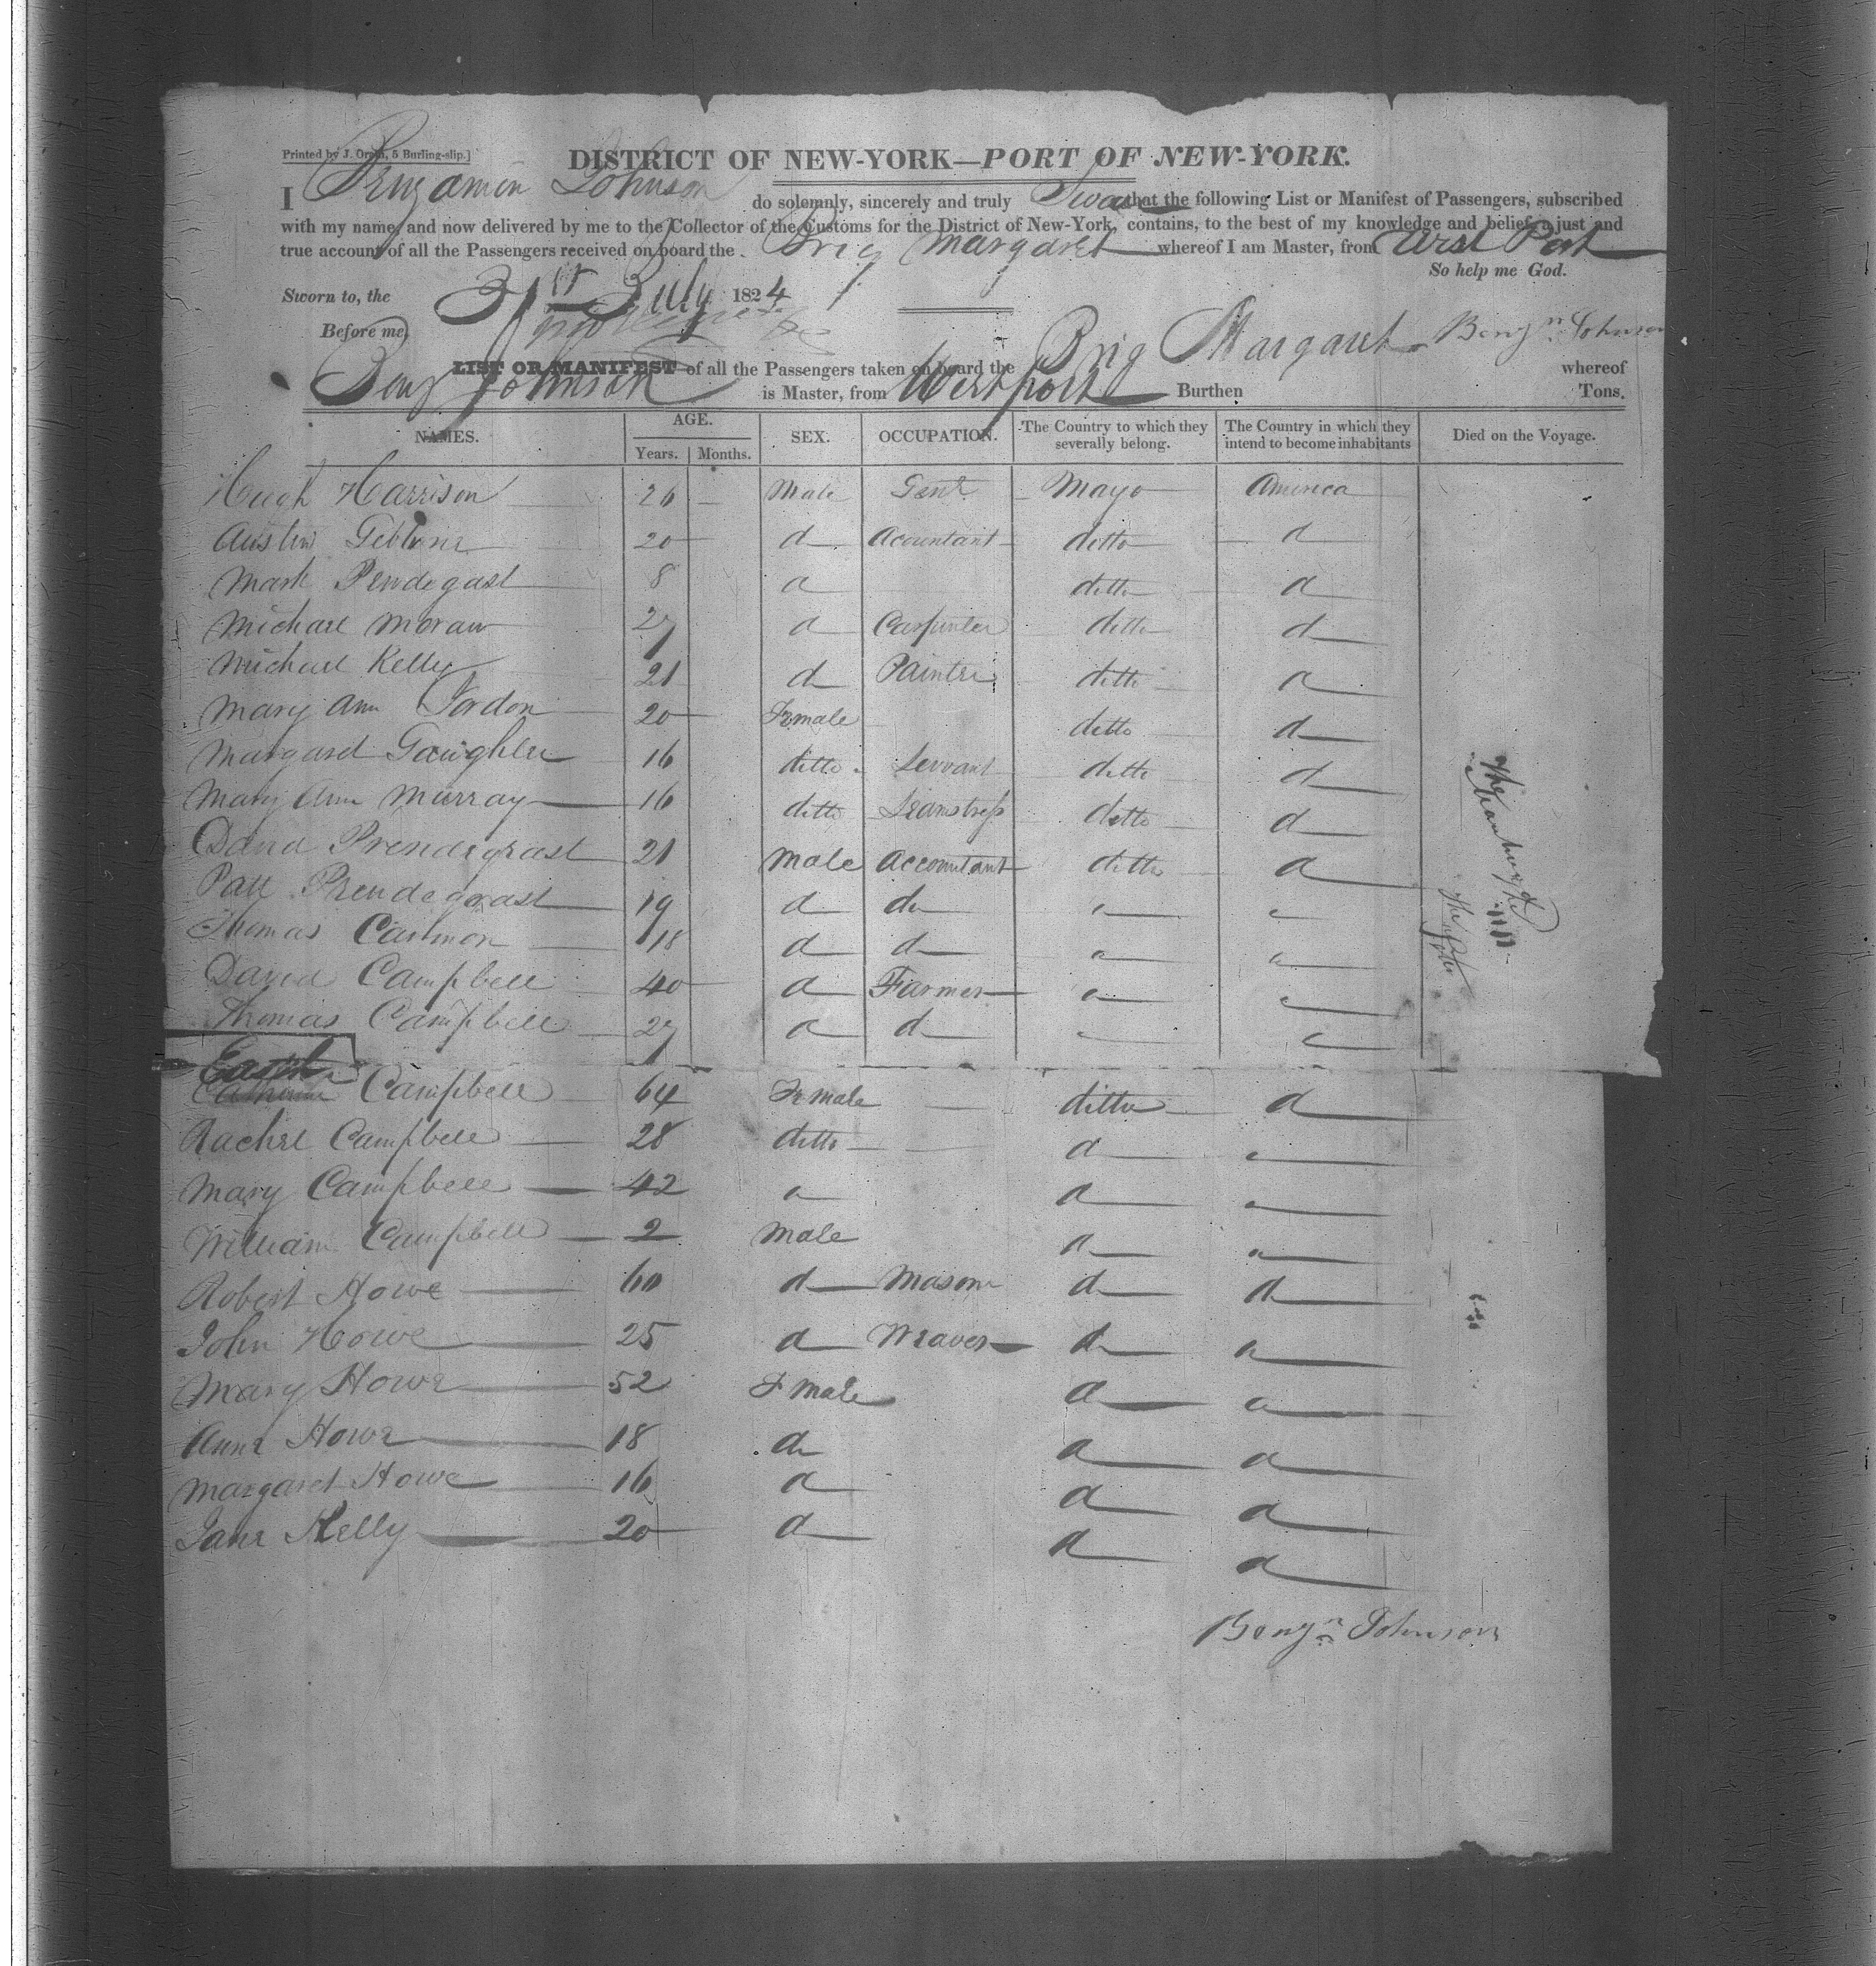 Printed by J. Oram, 5 Burling-slip.]
DISTRICT OF NEW-YORK—PORT OF NEW-YORK.
I Benjamin Johnson do solemnly, sincerely and truly Swear that the following List or Manifest of Passengers, subscribed
with my name, and now delivered by me to the Collector of the Customs for the District of New-York, contains, to the best of my knowledge and belief, a just and
true account of all the Passengers received on board the Brig Margaret whereof I am Master, from West Port
So help me God.
Sworn to, the 31st July 1824
Before me,
Benjn Johnson
LIST OR MANIFEST of all the Passengers taken on board the Brig Margaret whereof
Benj Johnson is Master, from Westport Burthen Tons.
NAMES. AGE. Years. Months. SEX. OCCUPATION. The Country to which they severally belong. The Country in which they intend to become inhabitants Died on the Voyage.
Hugh Harrison 26 — Male Gent Mayo America
Austin 20 d Acountant ditto d
Mark Pendegast 8 d ditto d
Michael Moran 27 d Carpenter ditto d
Michael Kelly 21 d Painter ditto d
Mary Ann Jordon 20 Female ditto d
Margaret Gaughler 16 ditto Servant ditto d
Mary Ann Murray 16 ditto Seamstress ditto d
David Prendergrast 21 Male Accountant ditto d
Patt Prendegrast 19 d do " "
Thomas Canmon 18 d d " "
David Campbell 40 d Farmer " "
Thomas Campbell 27 d d " "
Campbell 64 Female — ditto d
Rachel Campbell 28 ditto — d "
Mary Campbell 42 " d "
William Campbell 2 Male d "
Robert Howe 60 d Mason d d
John Howe 25 d Weaver d "
Mary Howe 52 Female d "
Anne Howe 18 d d d
Margaret Howe 16 d d d
Jane Kelly 20 d d d
Benjn Johnson